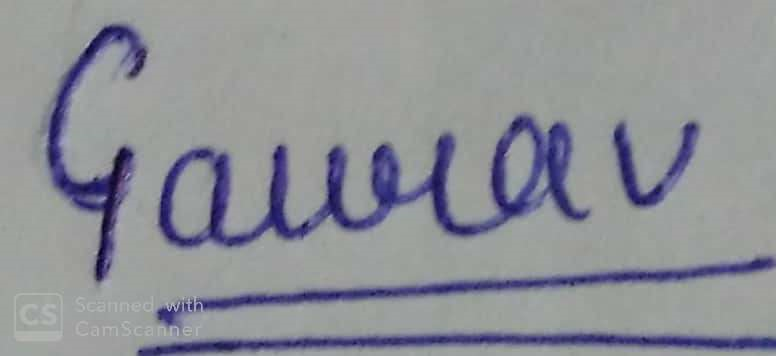 Gaurav
CS Scanned with
CamScanner